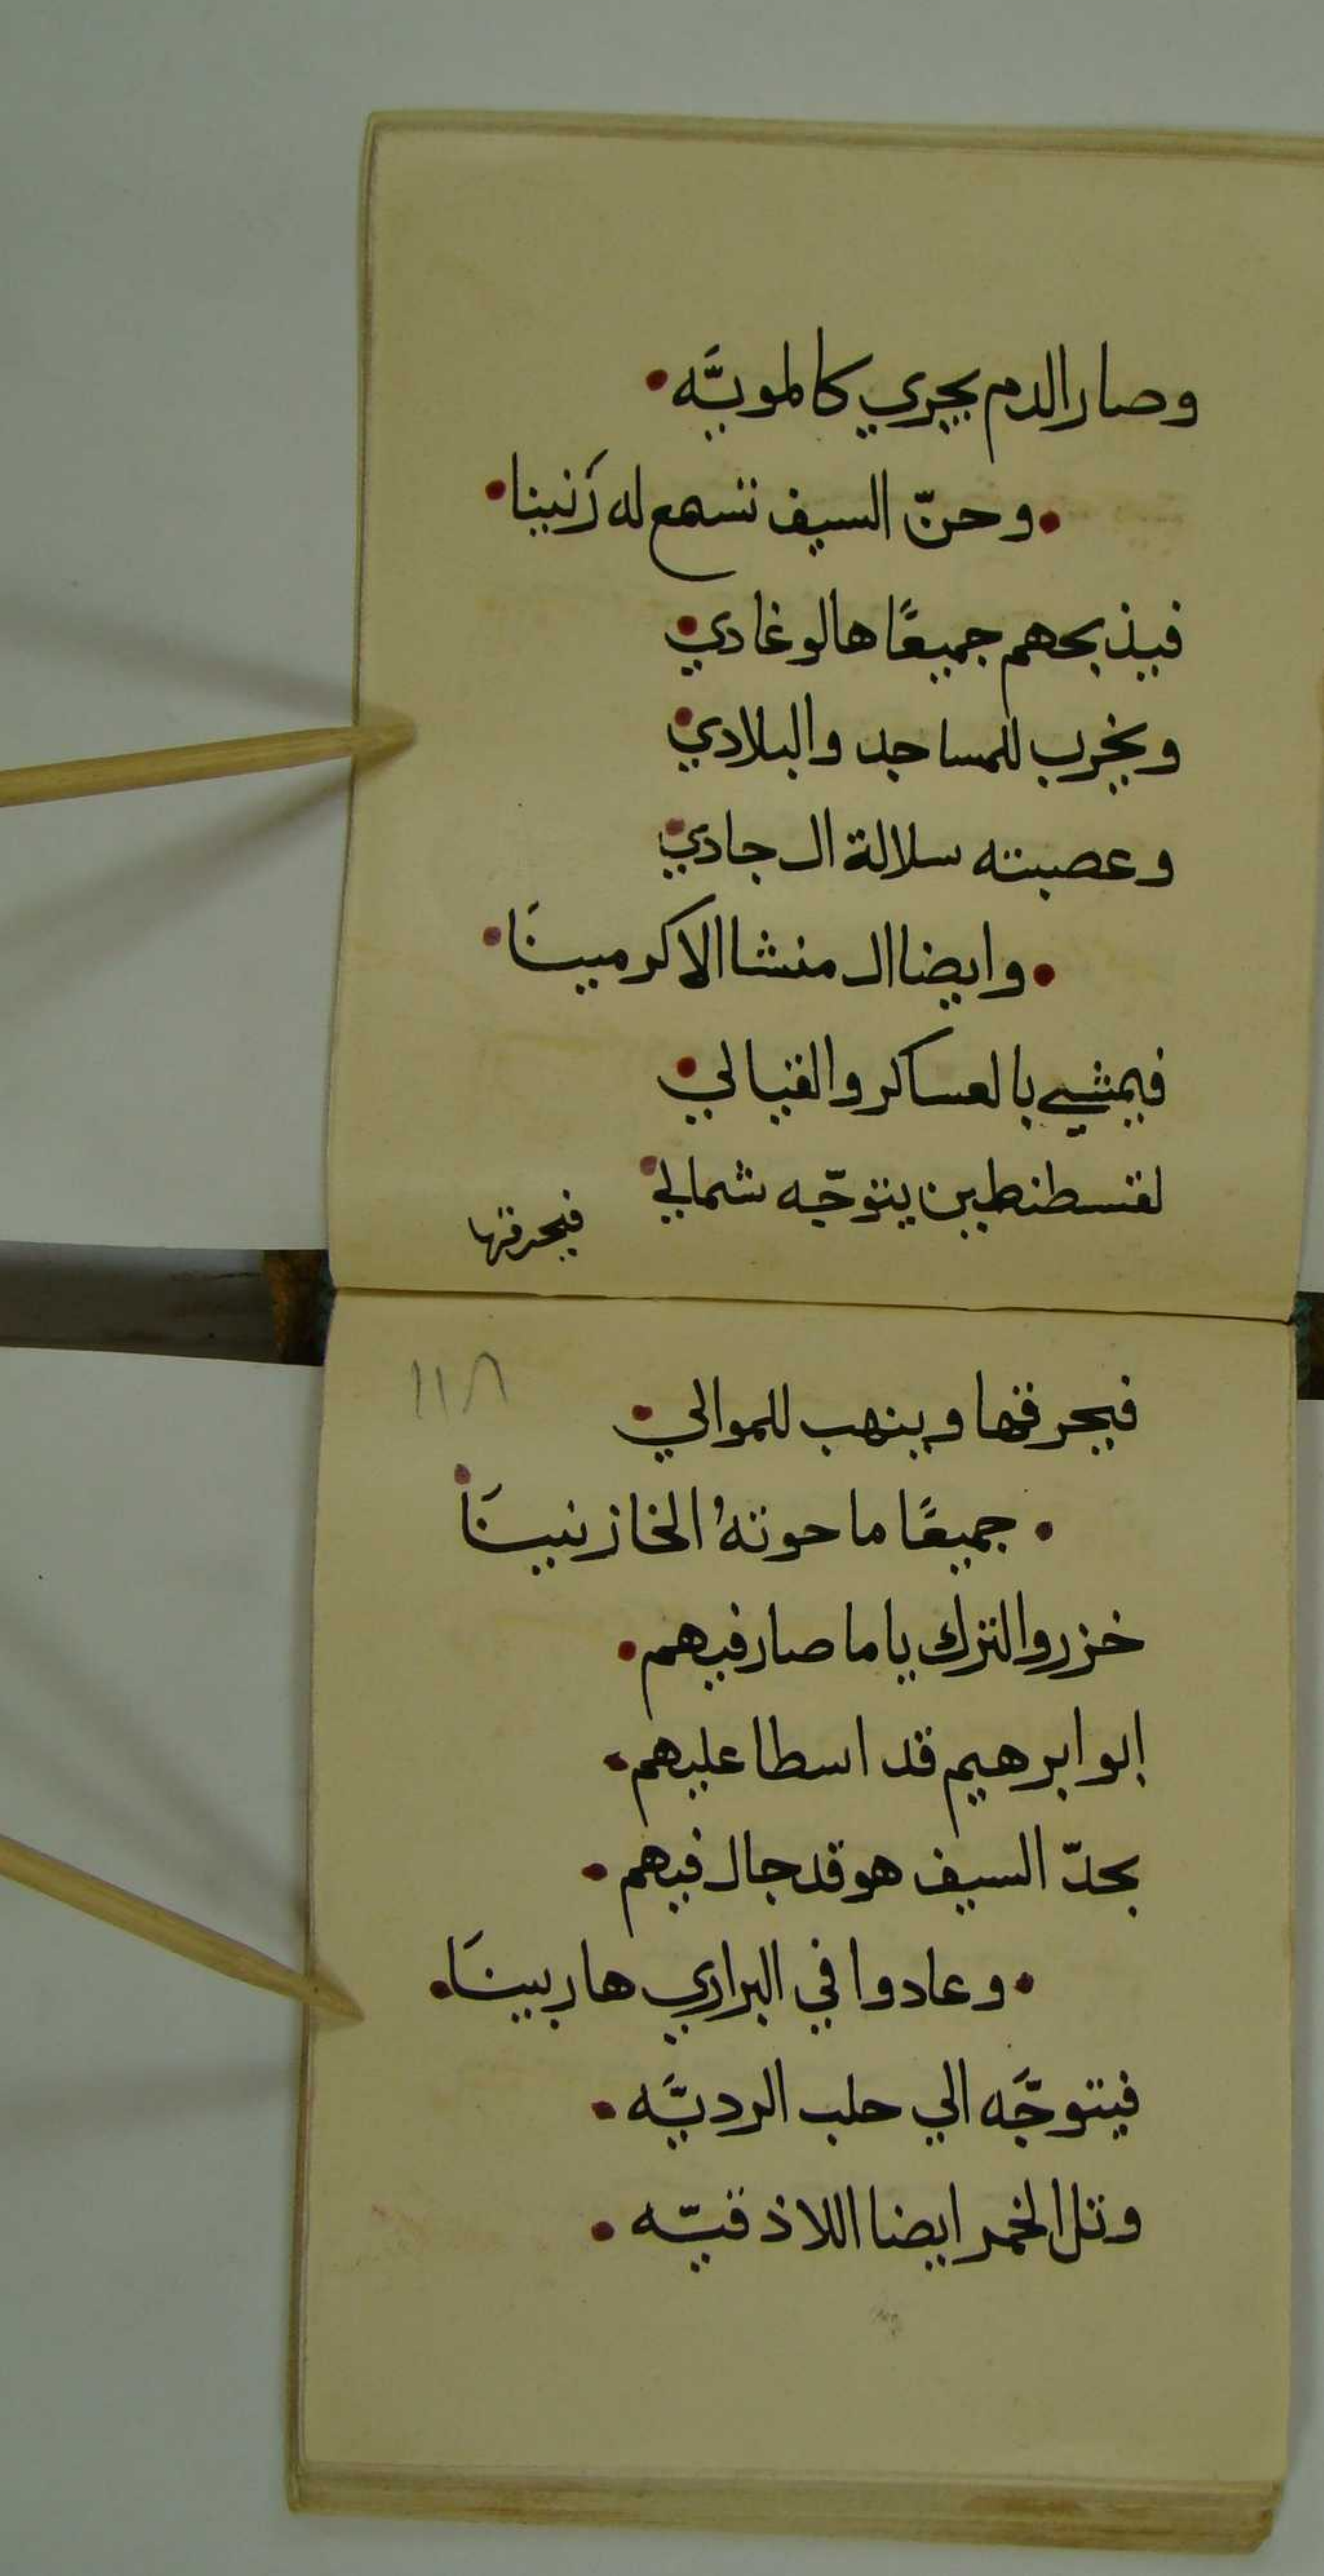 وصار الدم يجري كالمويَّه•
•وحنّ السيف تسمع له رَنينا•
فيذبحهم جميعًا هالوغادي•
ويخرب للمساجد والبلادي•
وعصبته سلالة ال جادي•
•وايضا ال منشا الاكرمينَا•
فيمشي بالعساكر والقبالي•
لقسطنطين يتوجّه شمالي•
فيحرقها
١١٨
فيحرقها وينهب للموالي•
•جميعًا ما حوتهُ الخازنيينَا•
خزروا الترك ياما صار فيهم•
ابو ابرهيم قد اسطا عليهم•
بحدّ السيف هو قد جال فيهم•
•وعادوا في البراري هاربينَا•
فيتوجَّه الي حلب الرديَّه•
وتل الخمر ايضا اللاذقيّه•